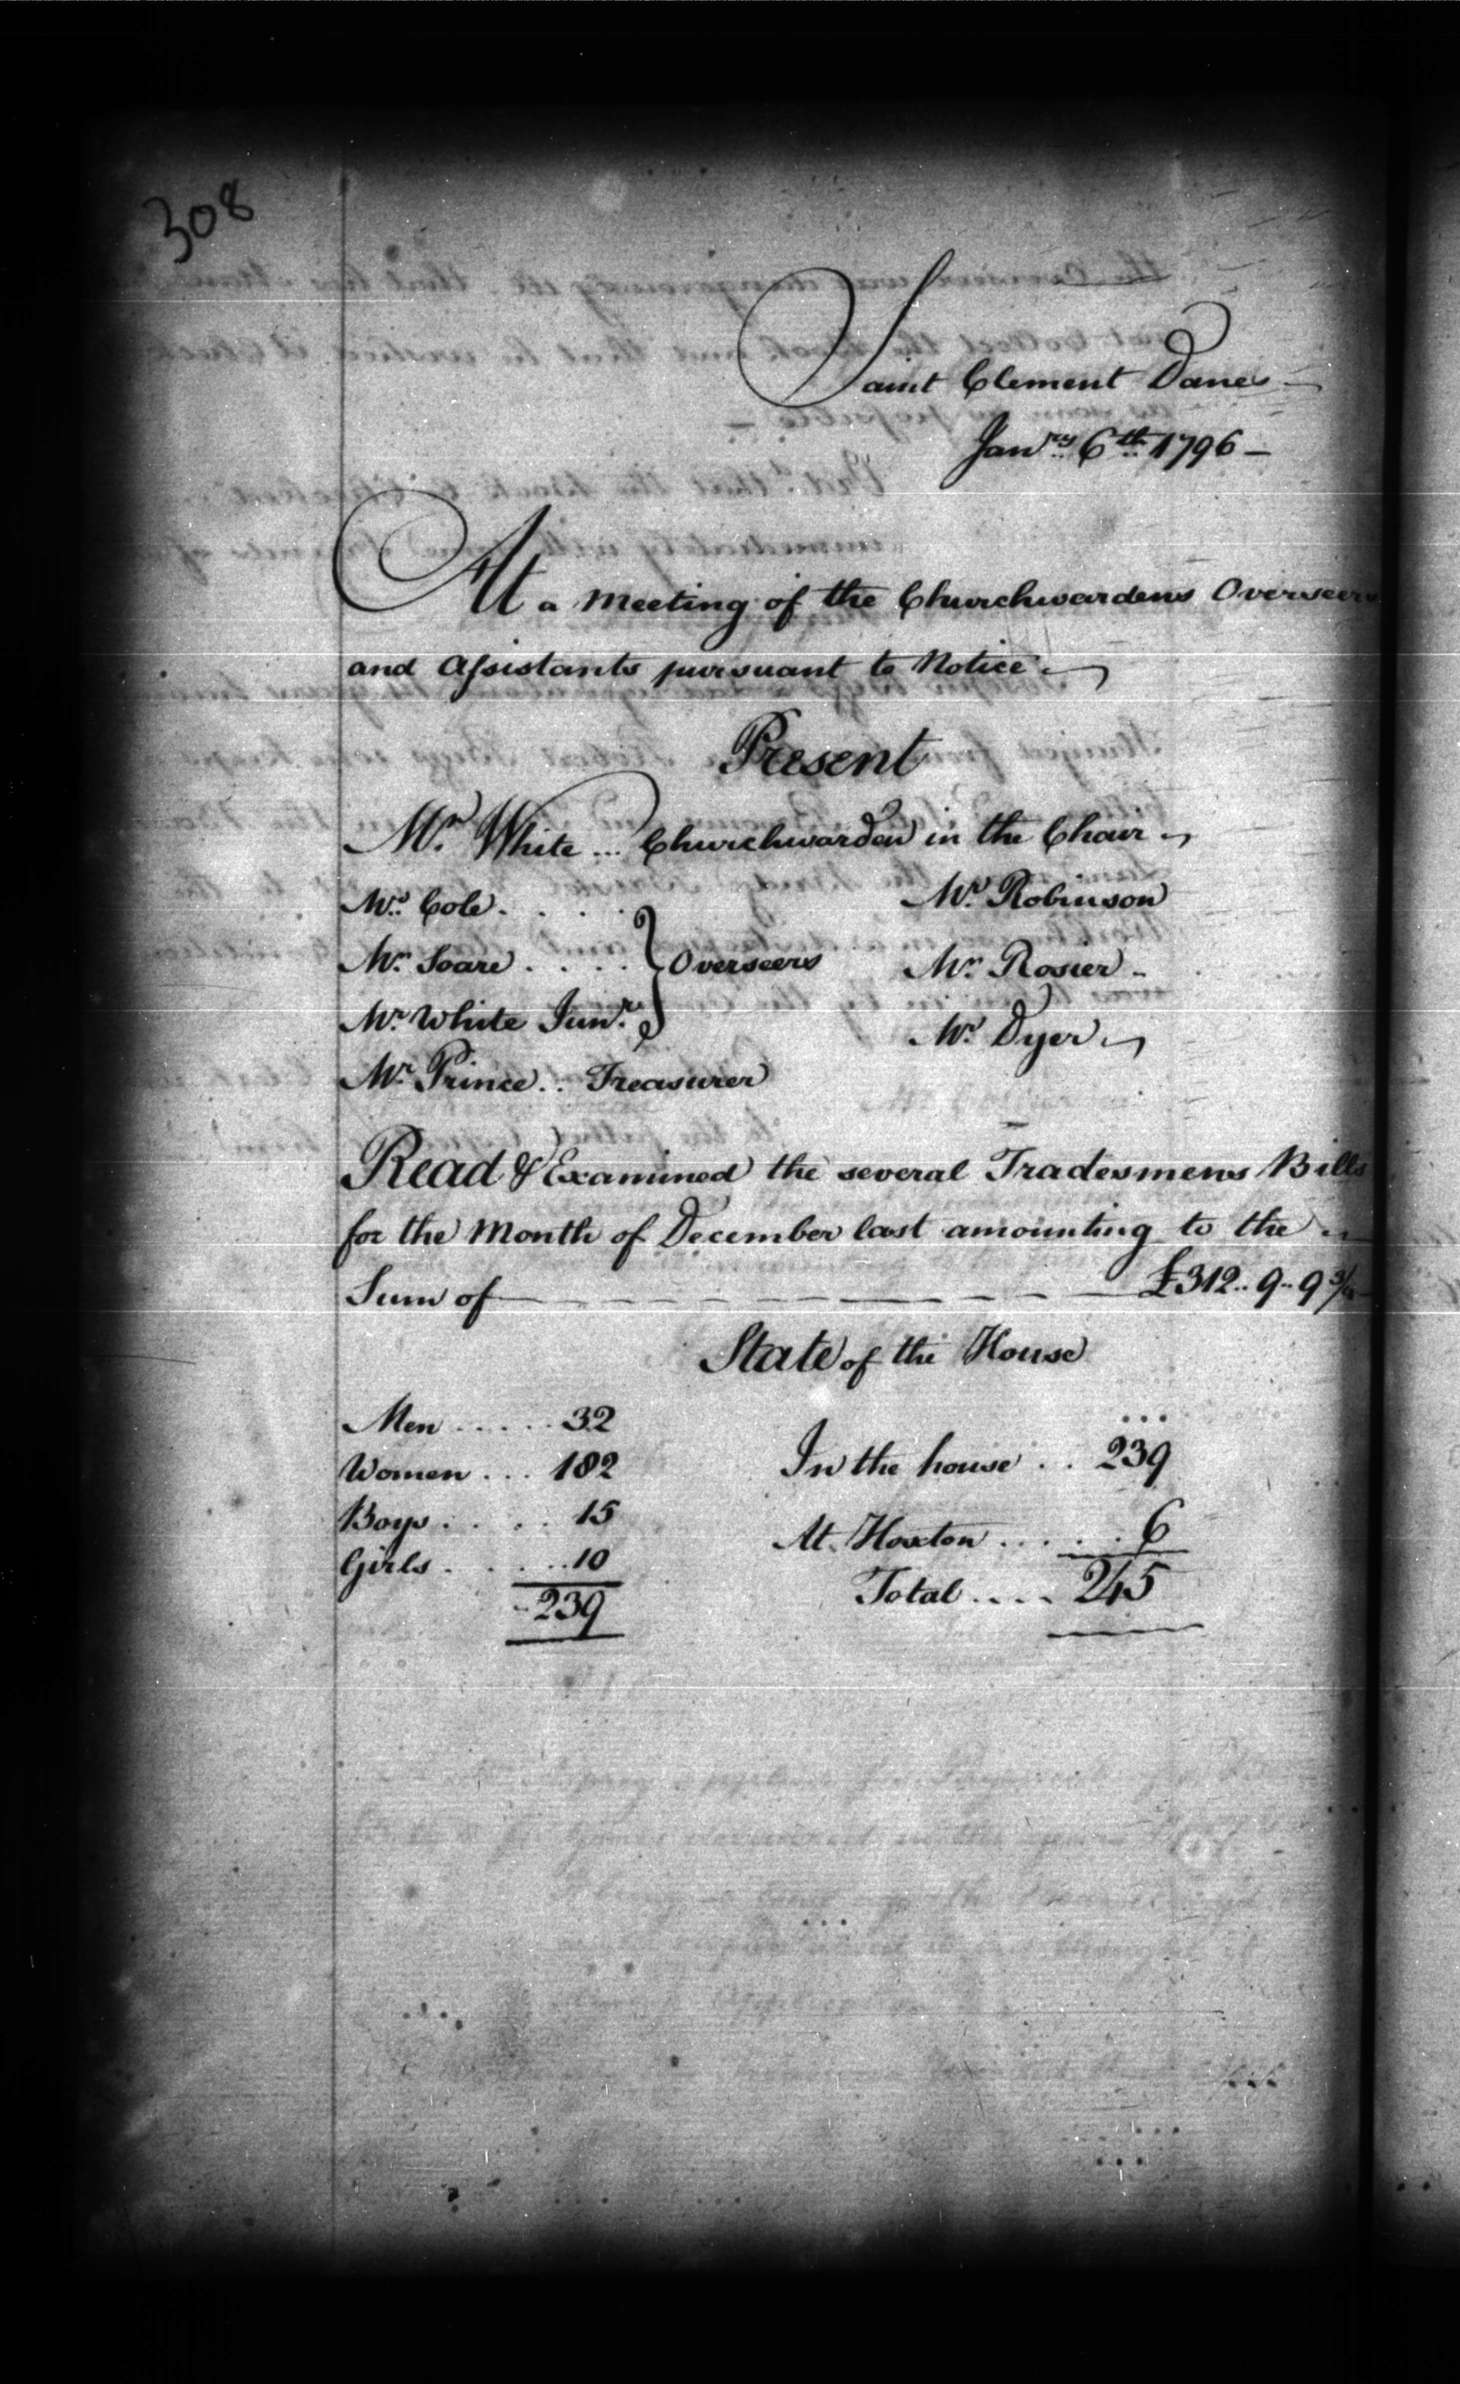 308
Saint Clement Danes
Janry 6th 1796
At a Meeting of the Churchwardens Overseers
and Assistants pursuant to Notice
Present
Mr White ... Churchwarden in the Chair
Mr Cole . . . . Mr Robinson
Mr Soare . . . . Overseers Mr Rosier
Mr White Junr Mr Dyer
Mr Prince .. Treasurer
Read & Examined the several Tradesmens Bills
for the Month of December last amounting to the
Sum of £312 .. 9 .. 9 3/4
State of the House
Men ..... 32
Women ... 182 In the house .. 239
Boys .... 15
Girls ..... 10 At Hoxton ..... 6
239 Total .... 245